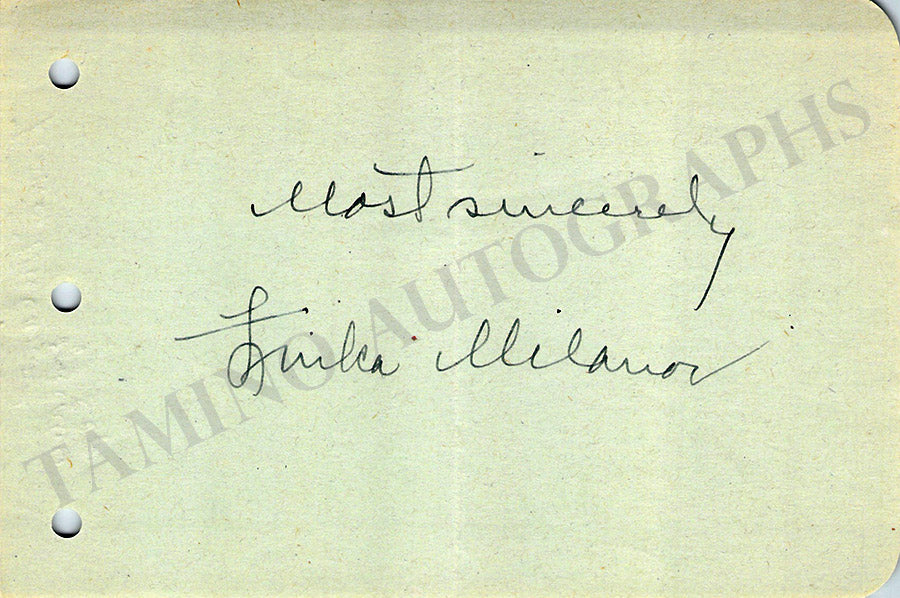 Most sincerely
Zinka Milanov
TAMINO AUTOGRAPHS